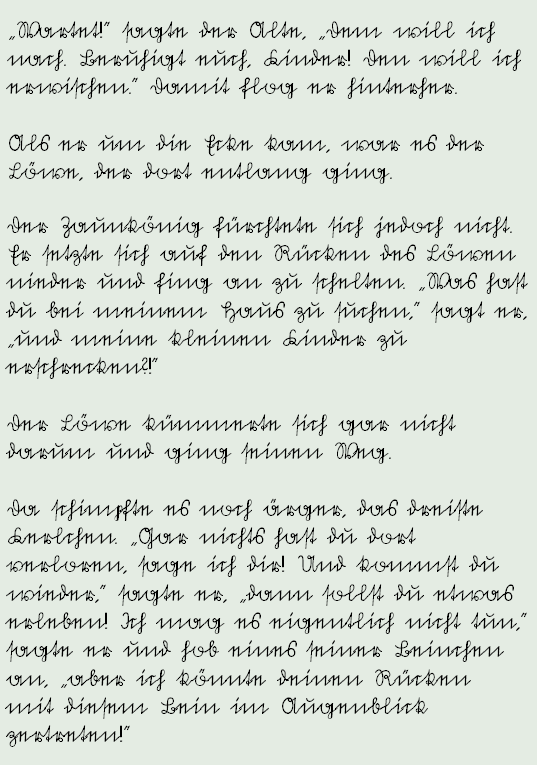 „Wartet!” sagte der Alte, „dem will ich
nach. Beruhigt euch, Kinder! Den will ich
erwischen.” Damit flog er hinterher.
Als er um die Ecke kam, war es der
Löwe, der dort entlang ging.
Der Zaunkönig fürchtete sich jedoch nicht.
Er setzte sich auf den Rücken des Löwen
nieder und fing an zu schelten. „Was hast
du bei meinem Haus zu suchen,” sagt er,
„und meine kleinen Kinder zu
erschrecken?!”
Der Löwe kümmerte sich gar nicht
darum und ging seinen Weg.
Da schimpfte es noch ärger, das dreiste
Kerlchen. „Gar nichts hast du dort
verloren, sage ich dir! Und kommst du
wieder,” sagte er, „dann sollst du etwas
erleben! Ich mag es eigentlich nicht tun,”
sagte er und hob eines seiner Beinchen
an, „aber ich könnte deinen Rücken
mit diesem Bein im Augenblick
zertreten!”